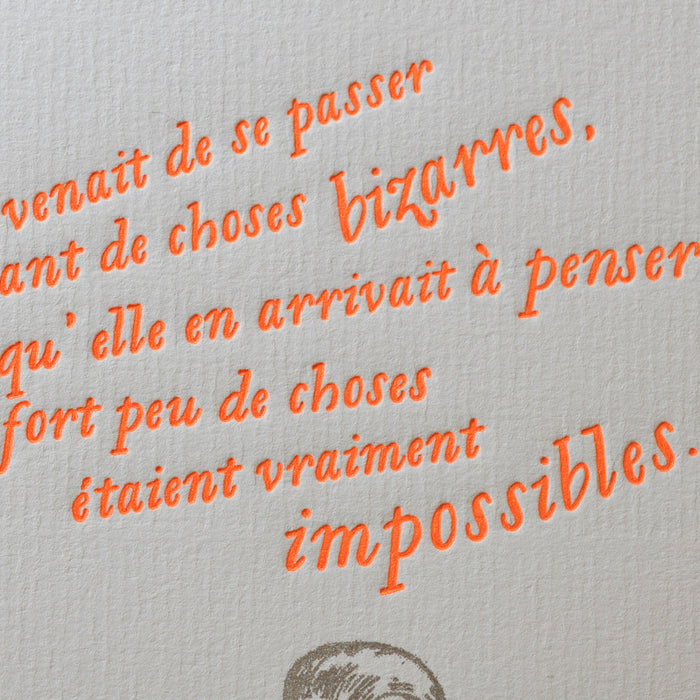 venait de se passer
ant de choses bizarres,
qu'elle en arrivait à penser
fort peu de choses
étaient vraiment
impossibles.